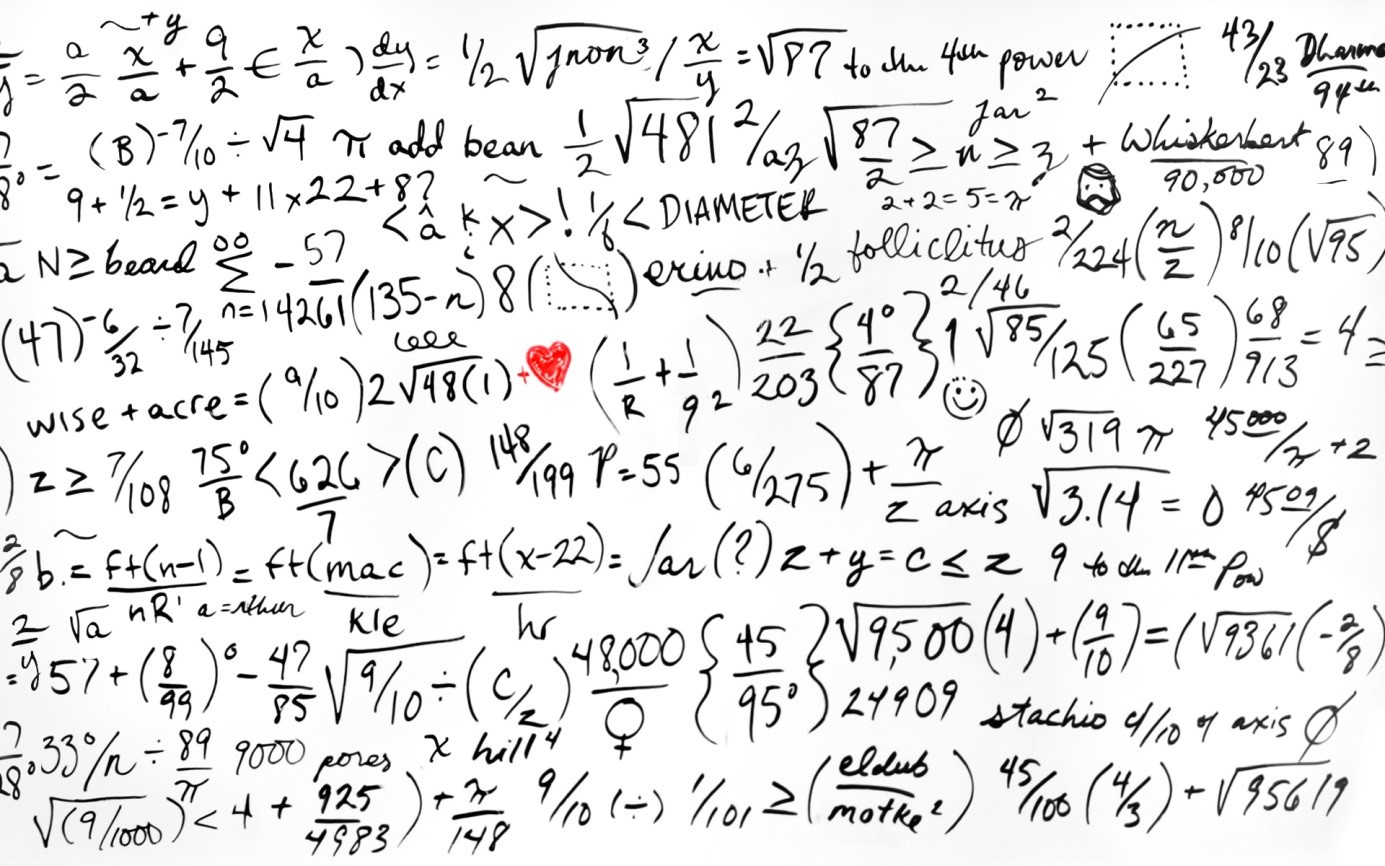 y = a/2 x/a + 9/2 ∈ x/a ) dy/dx = 1/2 √jnon³ / x/y = √87 to the 4th power 43/23 Dharma/94th
8° = (B)^-7/10 ÷ √4 π add bean 1/2 √481 2/az √87/2 ≥ n ≥ z jar² + Whiskerbert/90,000 89)
9 + 1/2 = y + 11 x 22 + 8? <â k x>! 1/6 < DIAMETER 2+2=5=π
N ≥ beard ∞ Σ n=1 -57/4261 (135-n) 8 ( ) erino + 1/2 folliclitus 2/224 (n/z) 8/10 (√95)
(47) -6/32 ÷ 7/145 22/203 {4°/87} 2/46 1 √85/125 (65/227) 68/913 = 4 ≥
wise + acre = (9/10) 2 √48(1) + ❤ (1/R + 1/9 2)
) z ≥ 7/108 75°/B < 626/7 > (C) 148/199 P=55 (6/275) + π/z axis Ø √319 π √3.14 = 0 45000/π + 2 4509/$
2/8 b. = ft(n-1)/nR' = ft(mac)/kle = ft(x-22)/hr = far (?) z + y = c ≤ z 9 to the 11th Pow
2/y √a a =
= 57 + (8/99)° - 47/85 √9/10 ÷ (C/z) 48,000/♀ {45/95°} √9,500 (4) + (9/10) = (√9361 (-2/8)
24909 stachio 4/10 of axis Ø
7/28° 33°/n ÷ 89/π 9000 pores x hill⁴
√(9/1000) < 4 + 925/4983 ) + π/148 9/10 (÷) 1/101 ≥ (eldub/motke²) 45/100 (4/3) + √95619